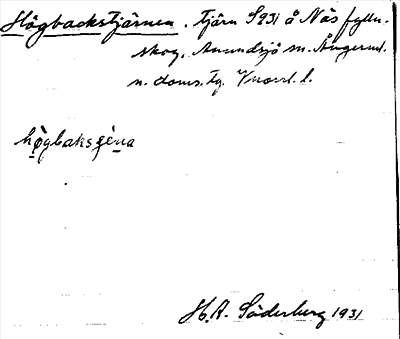 Högbackstjärnen. Tjärn S931 å Näs fylln.
skog, Anundsjö sn. Ångerml.
n. doms. tg. V.norrl. l.
högbaksɕèna
H.R. Söderberg 1931